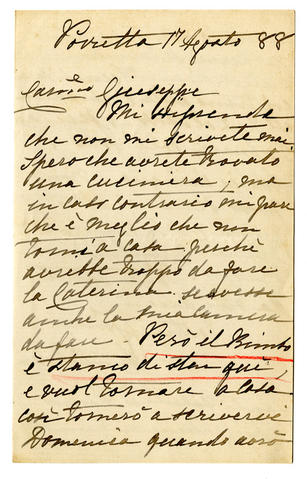 Porretta 17 Agosto 88
Carmo Giuseppe
Mi sorprende
che non mi scrivete mai
Spero che avrete trovato
una cuciniera, ma
in caso contrario mi pare
che è meglio che non
torni a casa perchè
avrebbe troppo da fare
la Caterina se avesse
anche la mia camera
da fare. Però il Bimbo
è stanco di star quì,
e vuol tornare a casa
così tornerò a scrivervi
Domenica quando avrò